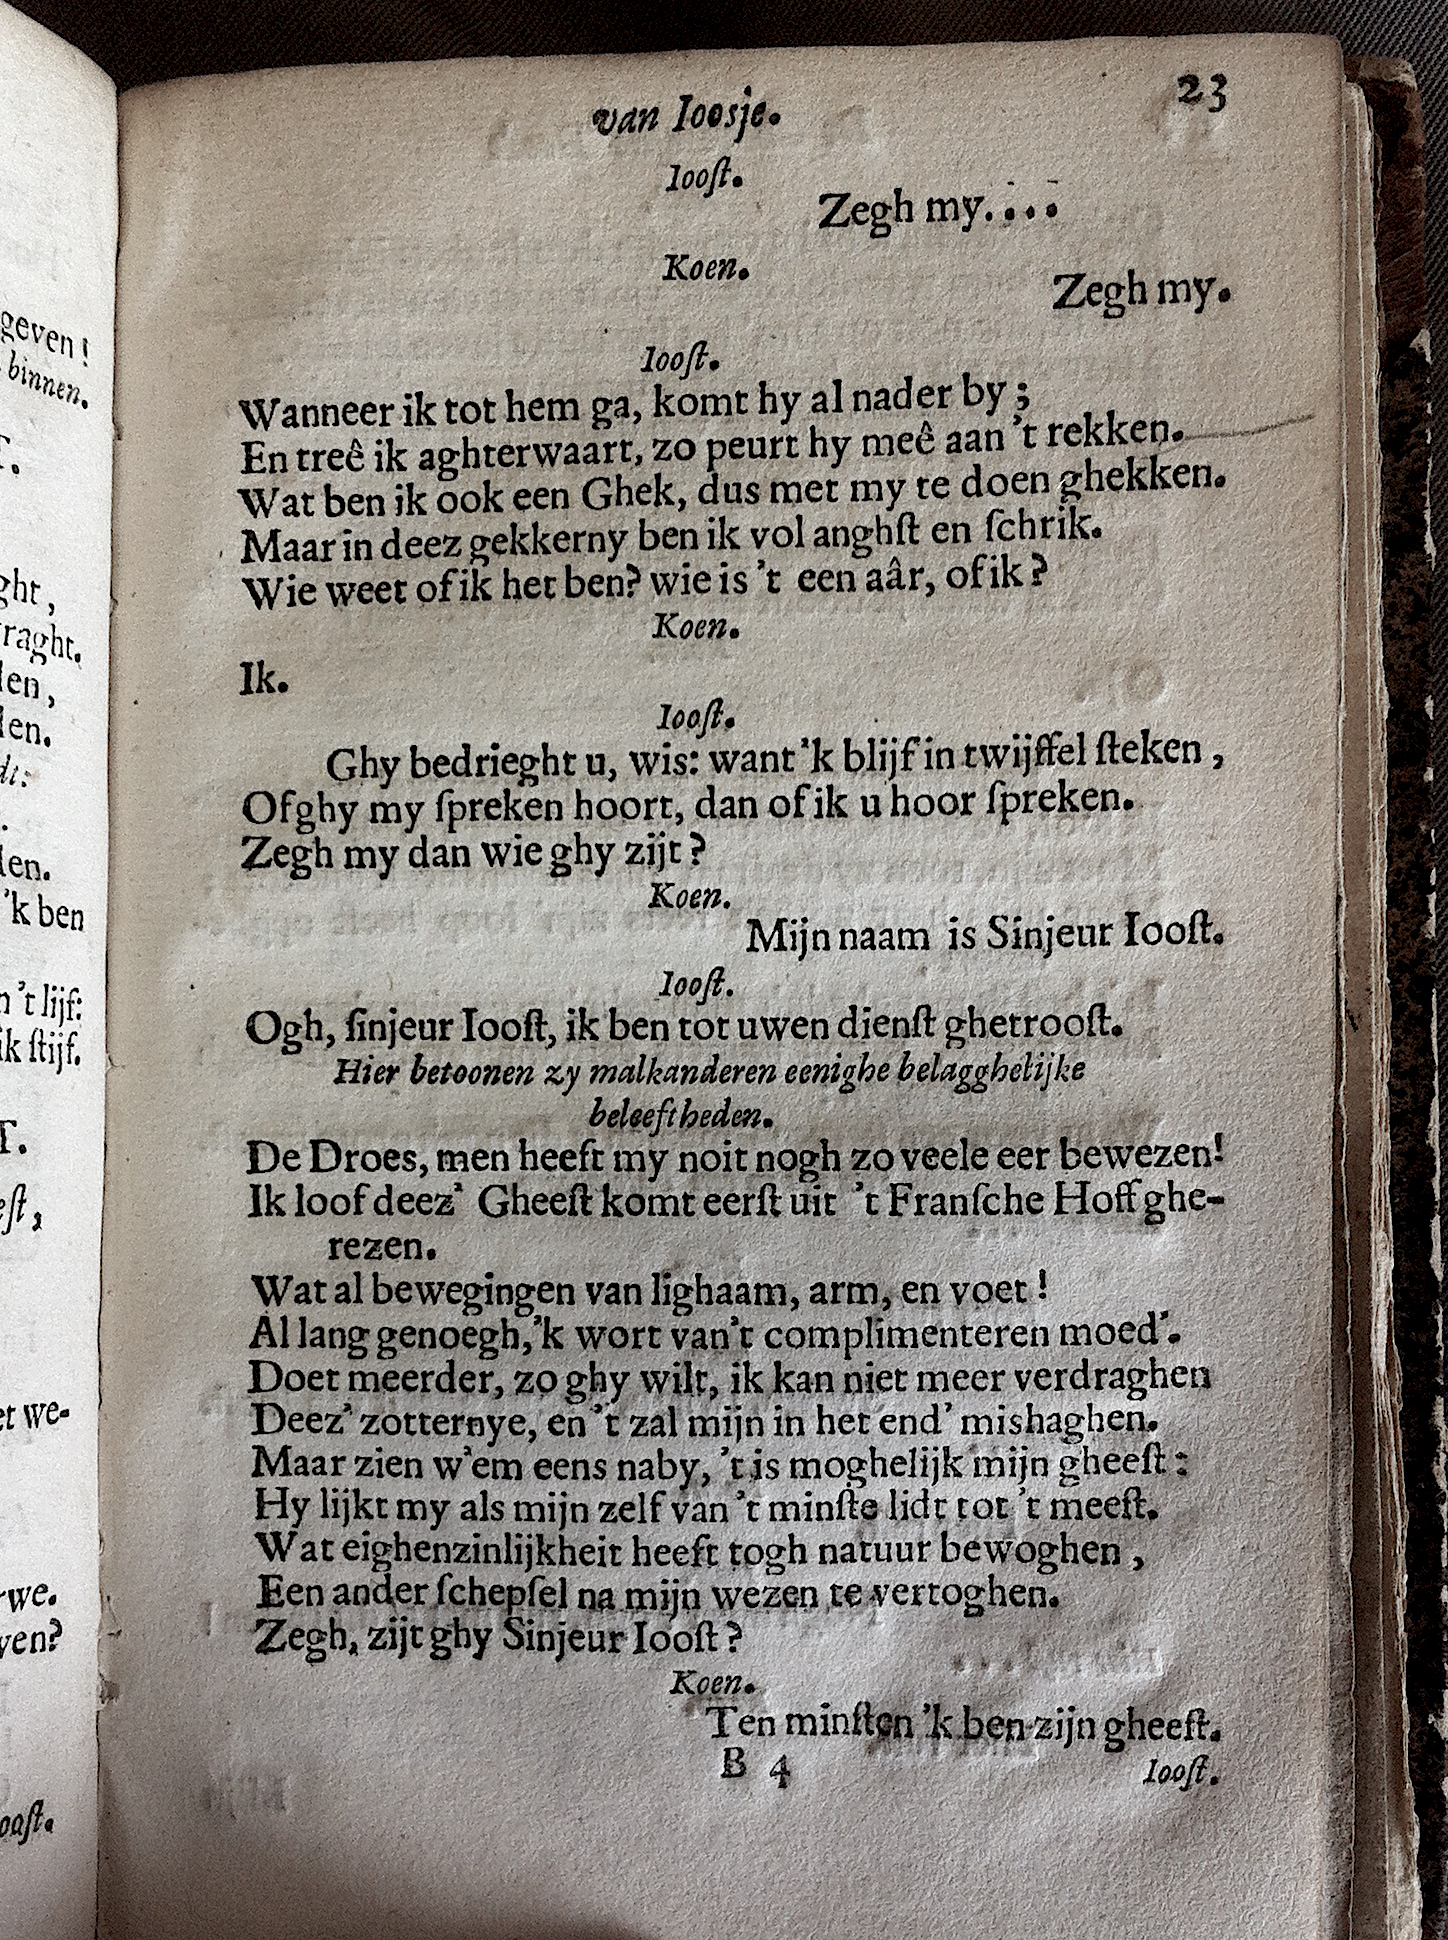 van Ioosje.
23
Iooſt.
Zegh my....
Koen.
Zegh my.
Iooſt.
Wanneer ik tot hem ga, komt hy al nader by;
En treê ik aghterwaart, zo peurt hy meê aan 't rekken.
Wat ben ik ook een Ghek, dus met my te doen ghekken.
Maar in deez gekkerny ben ik vol anghſt en ſchrik.
Wie weet of ik het ben? wie is 't een aâr, of ik?
Koen.
Ik.
Iooſt.
Ghy bedrieght u, wis: want 'k blijf in twijffel ſteken,
Of ghy my ſpreken hoort, dan of ik u hoor ſpreken.
Zegh my dan wie ghy zijt?
Koen.
Mijn naam is Sinjeur Iooſt.
Iooſt.
Ogh, ſinjeur Iooſt, ik ben tot uwen dienſt ghetrooſt.
Hier betoonen zy malkanderen eenighe belagghelijke
beleeftheden.
De Droes, men heeft my noit nogh zo veele eer bewezen!
Ik loof deez' Gheeſt komt eerſt uit 't Franſche Hoff ghe-
rezen.
Wat al bewegingen van lighaam, arm, en voet!
Al lang genoegh, 'k wort van't complimenteren moed'.
Doet meerder, zo ghy wilt, ik kan niet meer verdraghen
Deez' zotternye, en 't zal mijn in het end' mishaghen.
Maar zien w'em eens naby, 't is moghelijk mijn gheeſt:
Hy lijkt my als mijn zelf van 't minſte lidt tot 't meeſt.
Wat eighenzinlijkheit heeft togh natuur bewoghen,
Een ander ſchepſel na mijn wezen te vertoghen.
Zegh, zijt ghy Sinjeur Iooſt?
Koen.
Ten minſten 'k ben zijn gheeſt.
B 4
Iooſt.
geven!
binnen.
T.
ght,
raght.
len,
len.
dt:
.
len.
'k ben
n 't lijf:
ik ſtijf.
T.
eſt,
et we-
rwe.
ven?
ooſt.